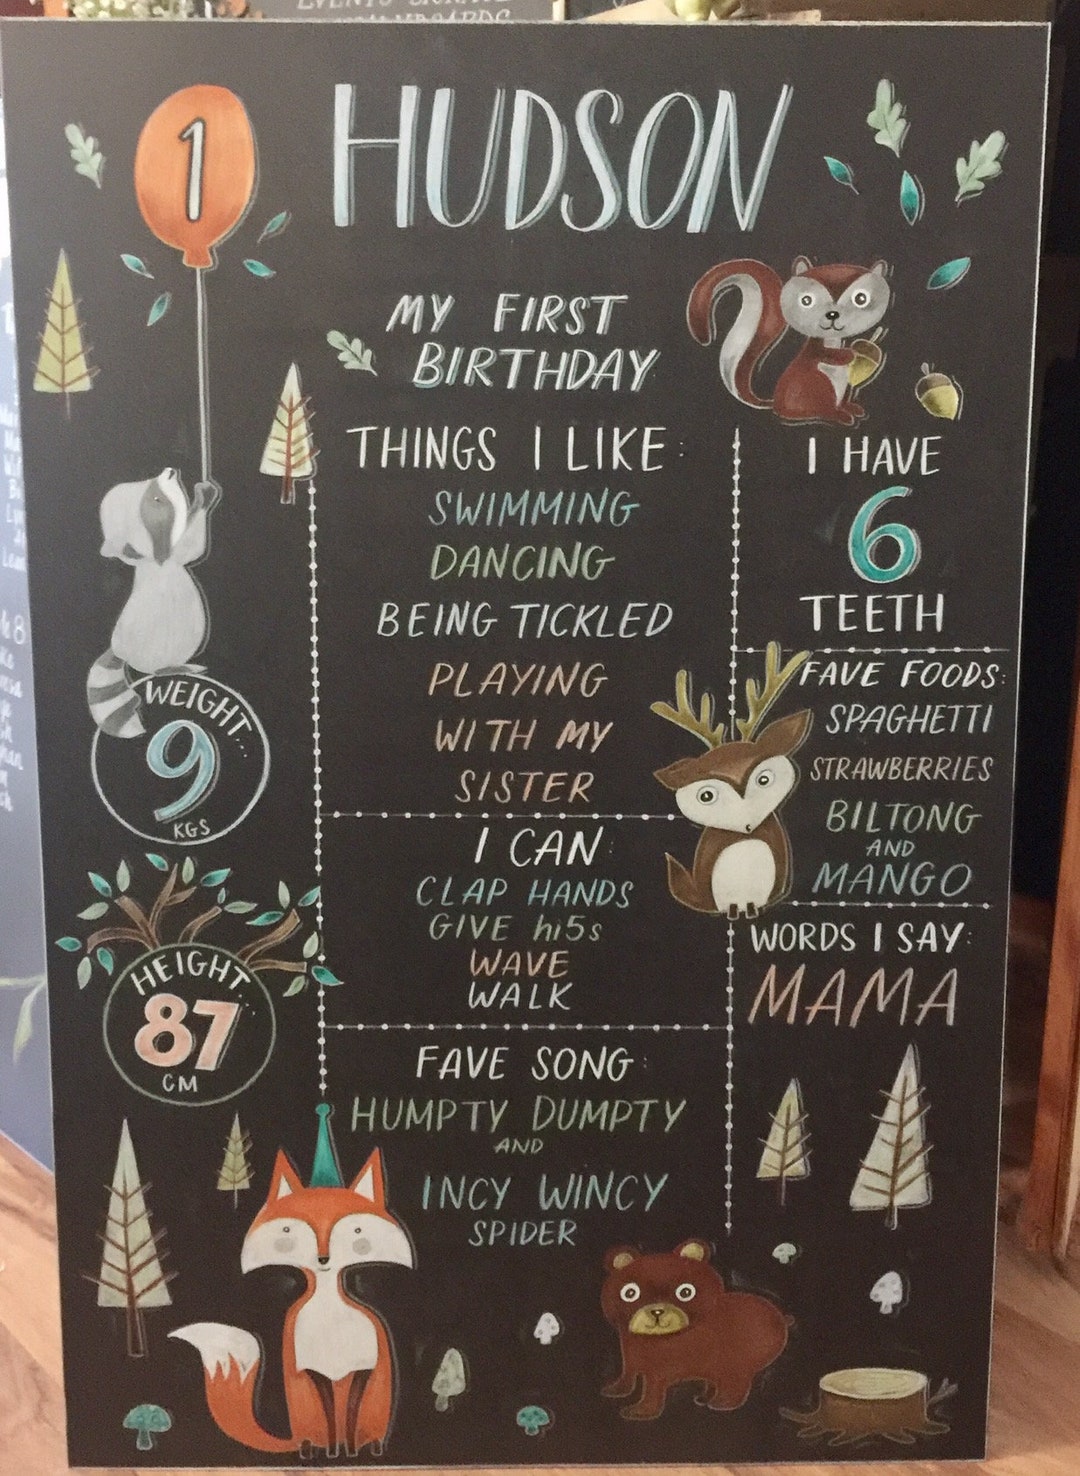 EVENTS
1
HUDSON
MY FIRST
BIRTHDAY
THINGS I LIKE:
SWIMMING
DANCING
BEING TICKLED
PLAYING
WITH MY
SISTER
I HAVE
6
TEETH
WEIGHT...
9
KGS
FAVE FOODS:
SPAGHETTI
STRAWBERRIES
BILTONG
AND
MANGO
I CAN:
CLAP HANDS
GIVE hi5s
WAVE
WALK
HEIGHT...
87
CM
WORDS I SAY:
MAMA
FAVE SONG:
HUMPTY DUMPTY
AND
INCY WINCY
SPIDER